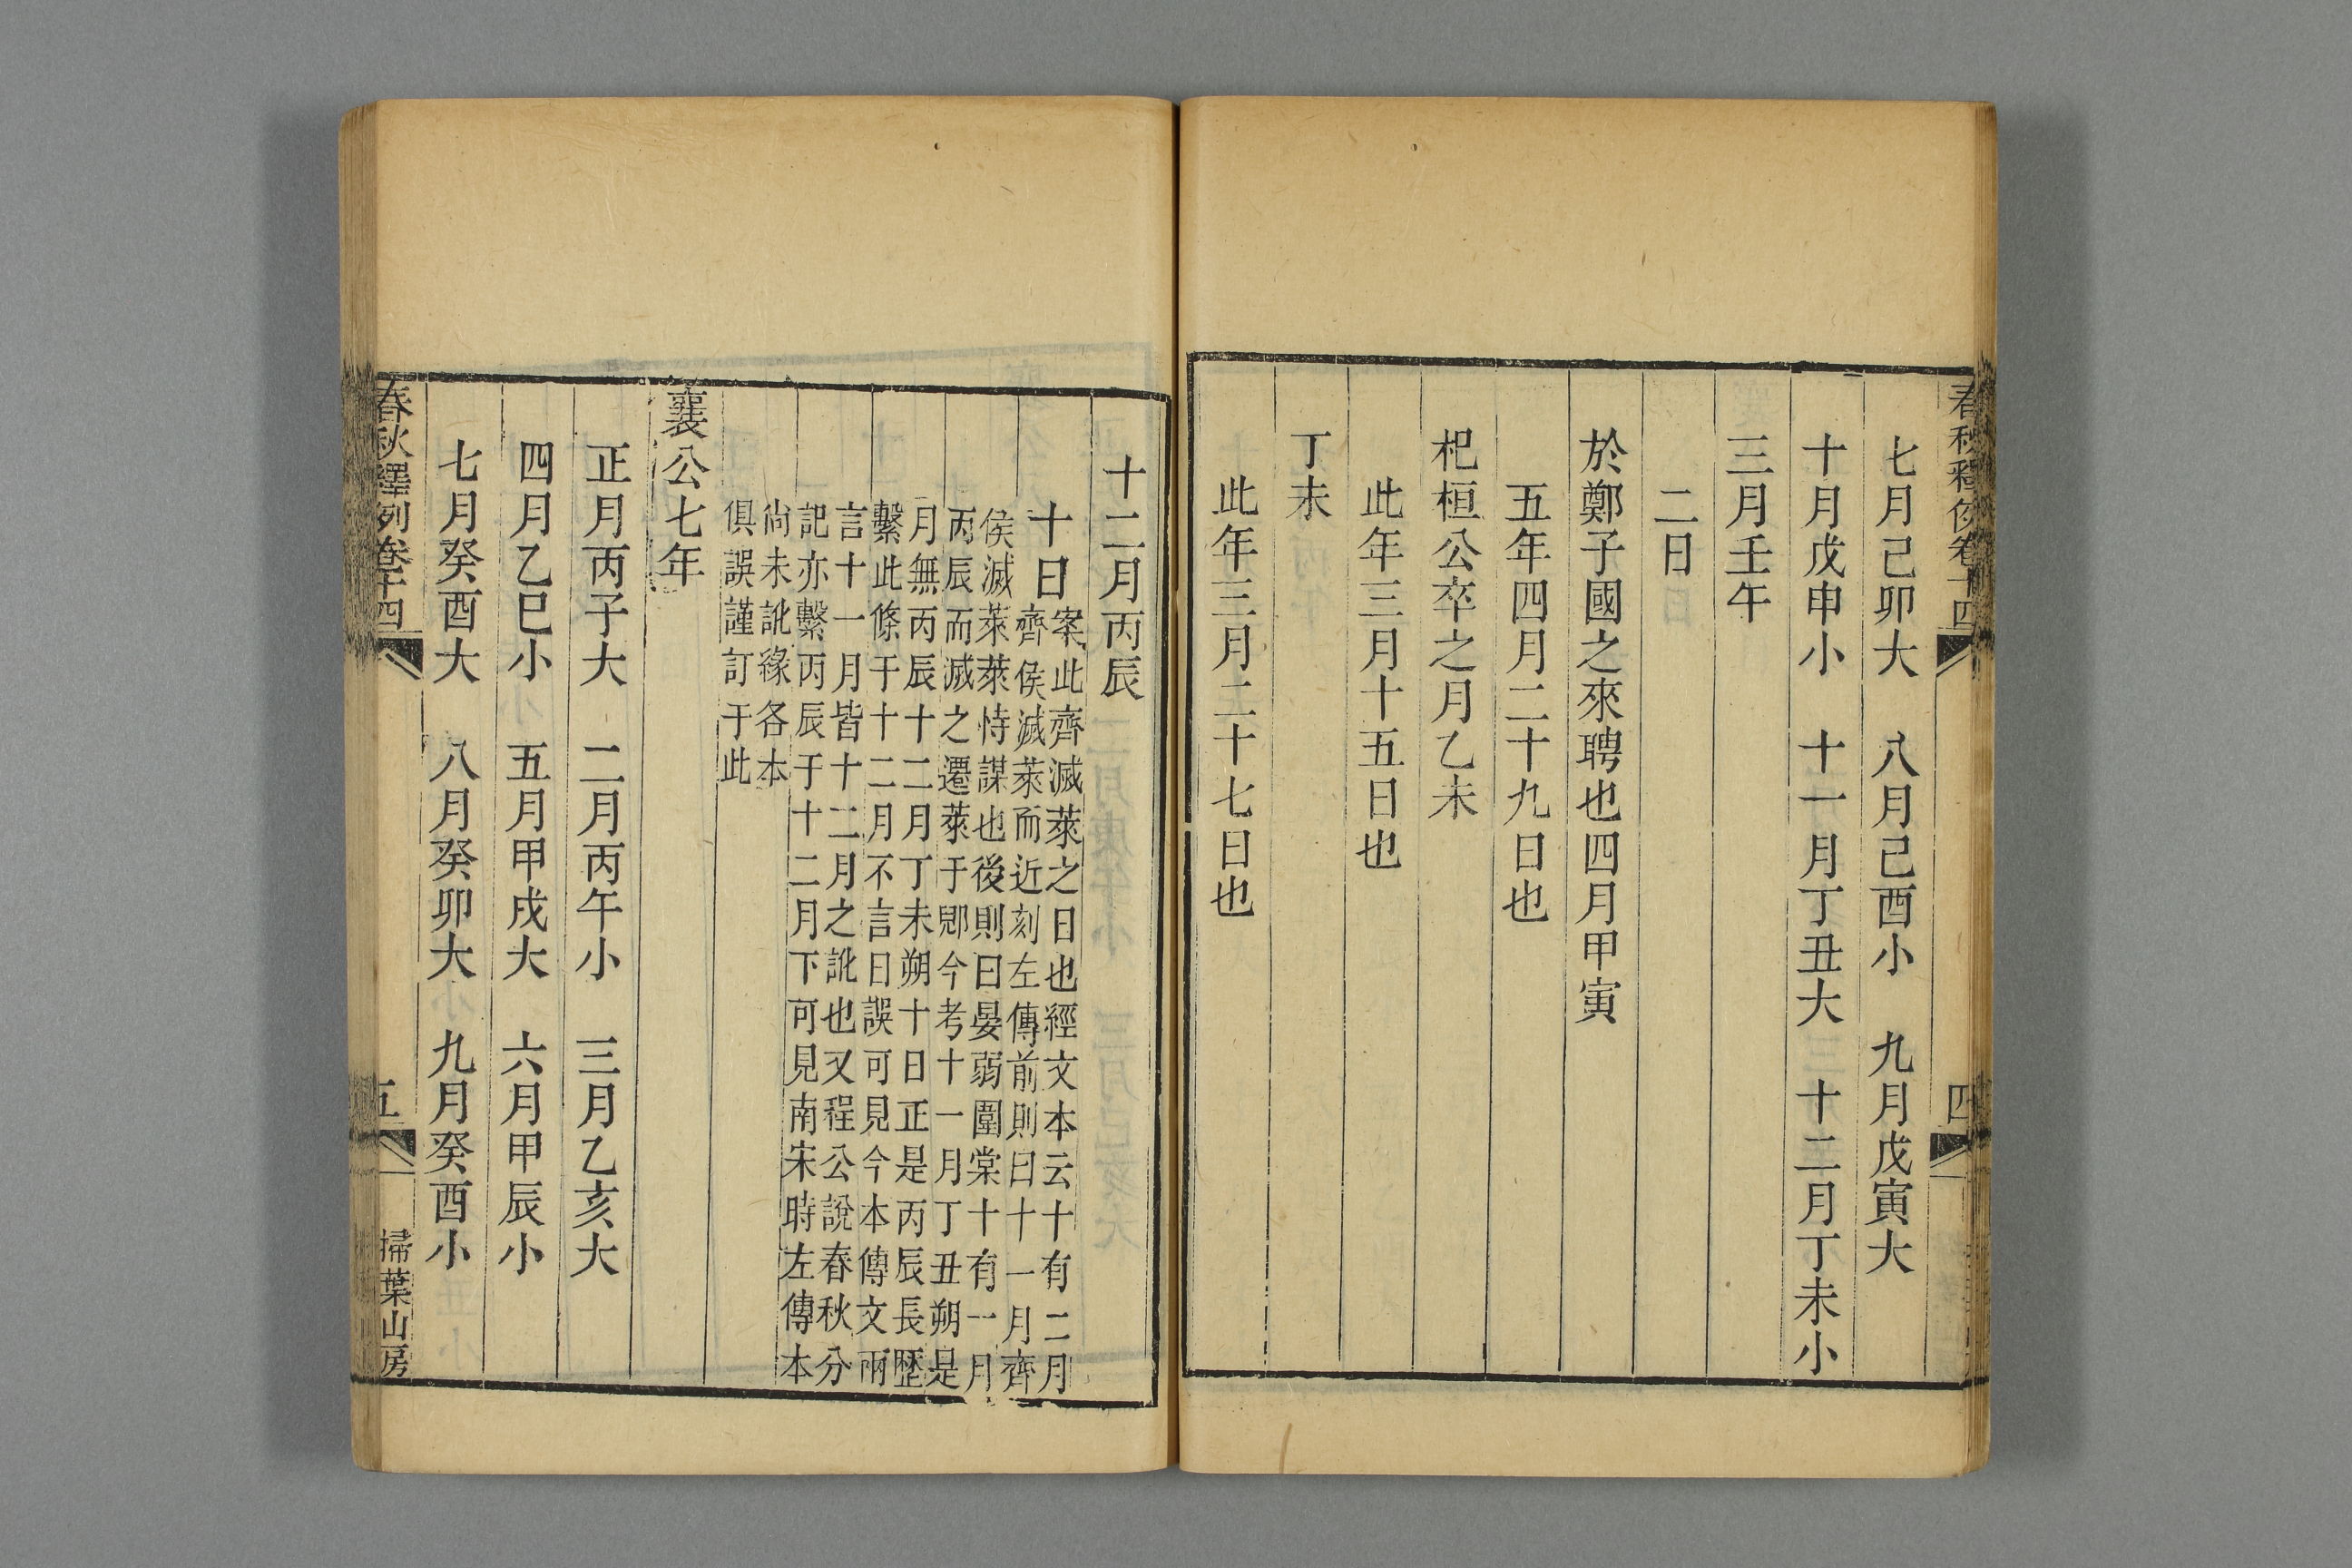 春秋釋例卷十四 四
七月己卯大 八月己酉小 九月戊寅大
十月戊申小 十一月丁丑大 十二月丁未小
三月壬午
二日
於鄭子國之來聘也四月甲寅
五年四月二十九日也
杞桓公卒之月乙未
此年三月十五日也
丁未
此年三月二十七日也
十二月丙辰
十日
案此齊滅萊之日也經文本云十有二月
齊侯滅萊而近刻左傳前則曰十一月齊
侯滅萊萊恃謀也後則曰晏弱圍棠十有一月
丙辰而滅之遷萊于郳今考十一月丁丑朔是
月無丙辰十二月丁未朔十日正是丙辰長歷
繫此條于十二月不言日誤可見今本傳文兩
言十一月皆十二月之訛也又程公說春秋分
記亦繫丙辰于十二月下可見南宋時左傳本
尚未訛緣各本
俱誤謹訂于此
襄公七年
正月丙子大 二月丙午小 三月乙亥大
四月乙巳小 五月甲戌大 六月甲辰小
七月癸酉大 八月癸卯大 九月癸酉小
春秋釋例卷十四 五 掃葉山房